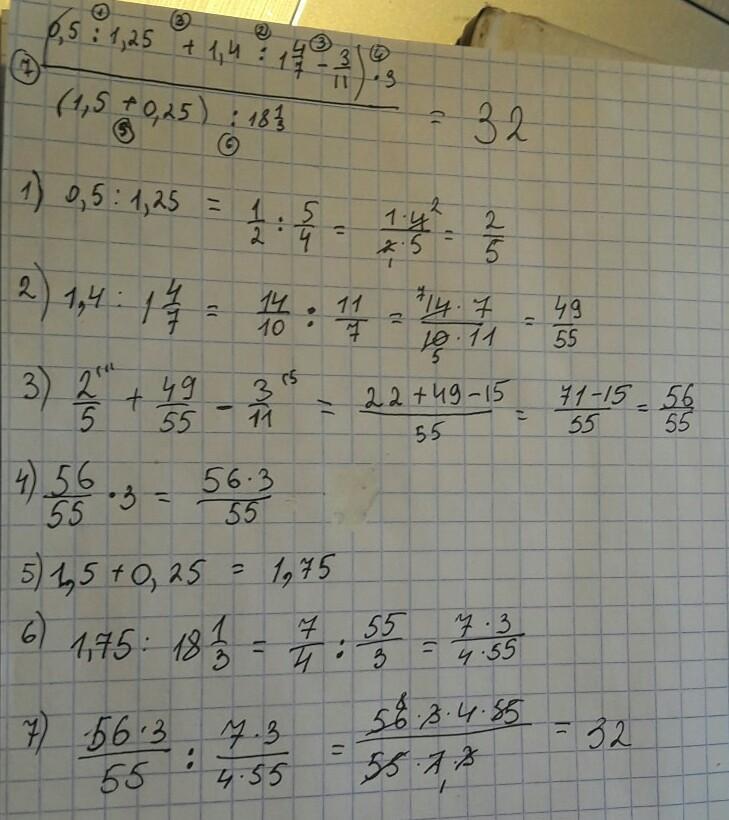 (0,5 : 1,25 + 1,4 : 1 4/7 - 3/11) · 3
(1,5 + 0,25) : 18 1/3 = 32
1) 0,5 : 1,25 = 1/2 : 5/4 = 1·4/2·5 = 2/5
2) 1,4 : 1 4/7 = 14/10 : 11/7 = 14·7/10·11 = 49/55
3) 2/5 + 49/55 - 3/11 = 22+49-15/55 = 71-15/55 = 56/55
4) 56/55 · 3 = 56·3/55
5) 1,5 + 0,25 = 1,75
6) 1,75 : 18 1/3 = 7/4 : 55/3 = 7·3/4·55
7) 56·3/55 : 7·3/4·55 = 56·3·4·55/55·7·3 = 32